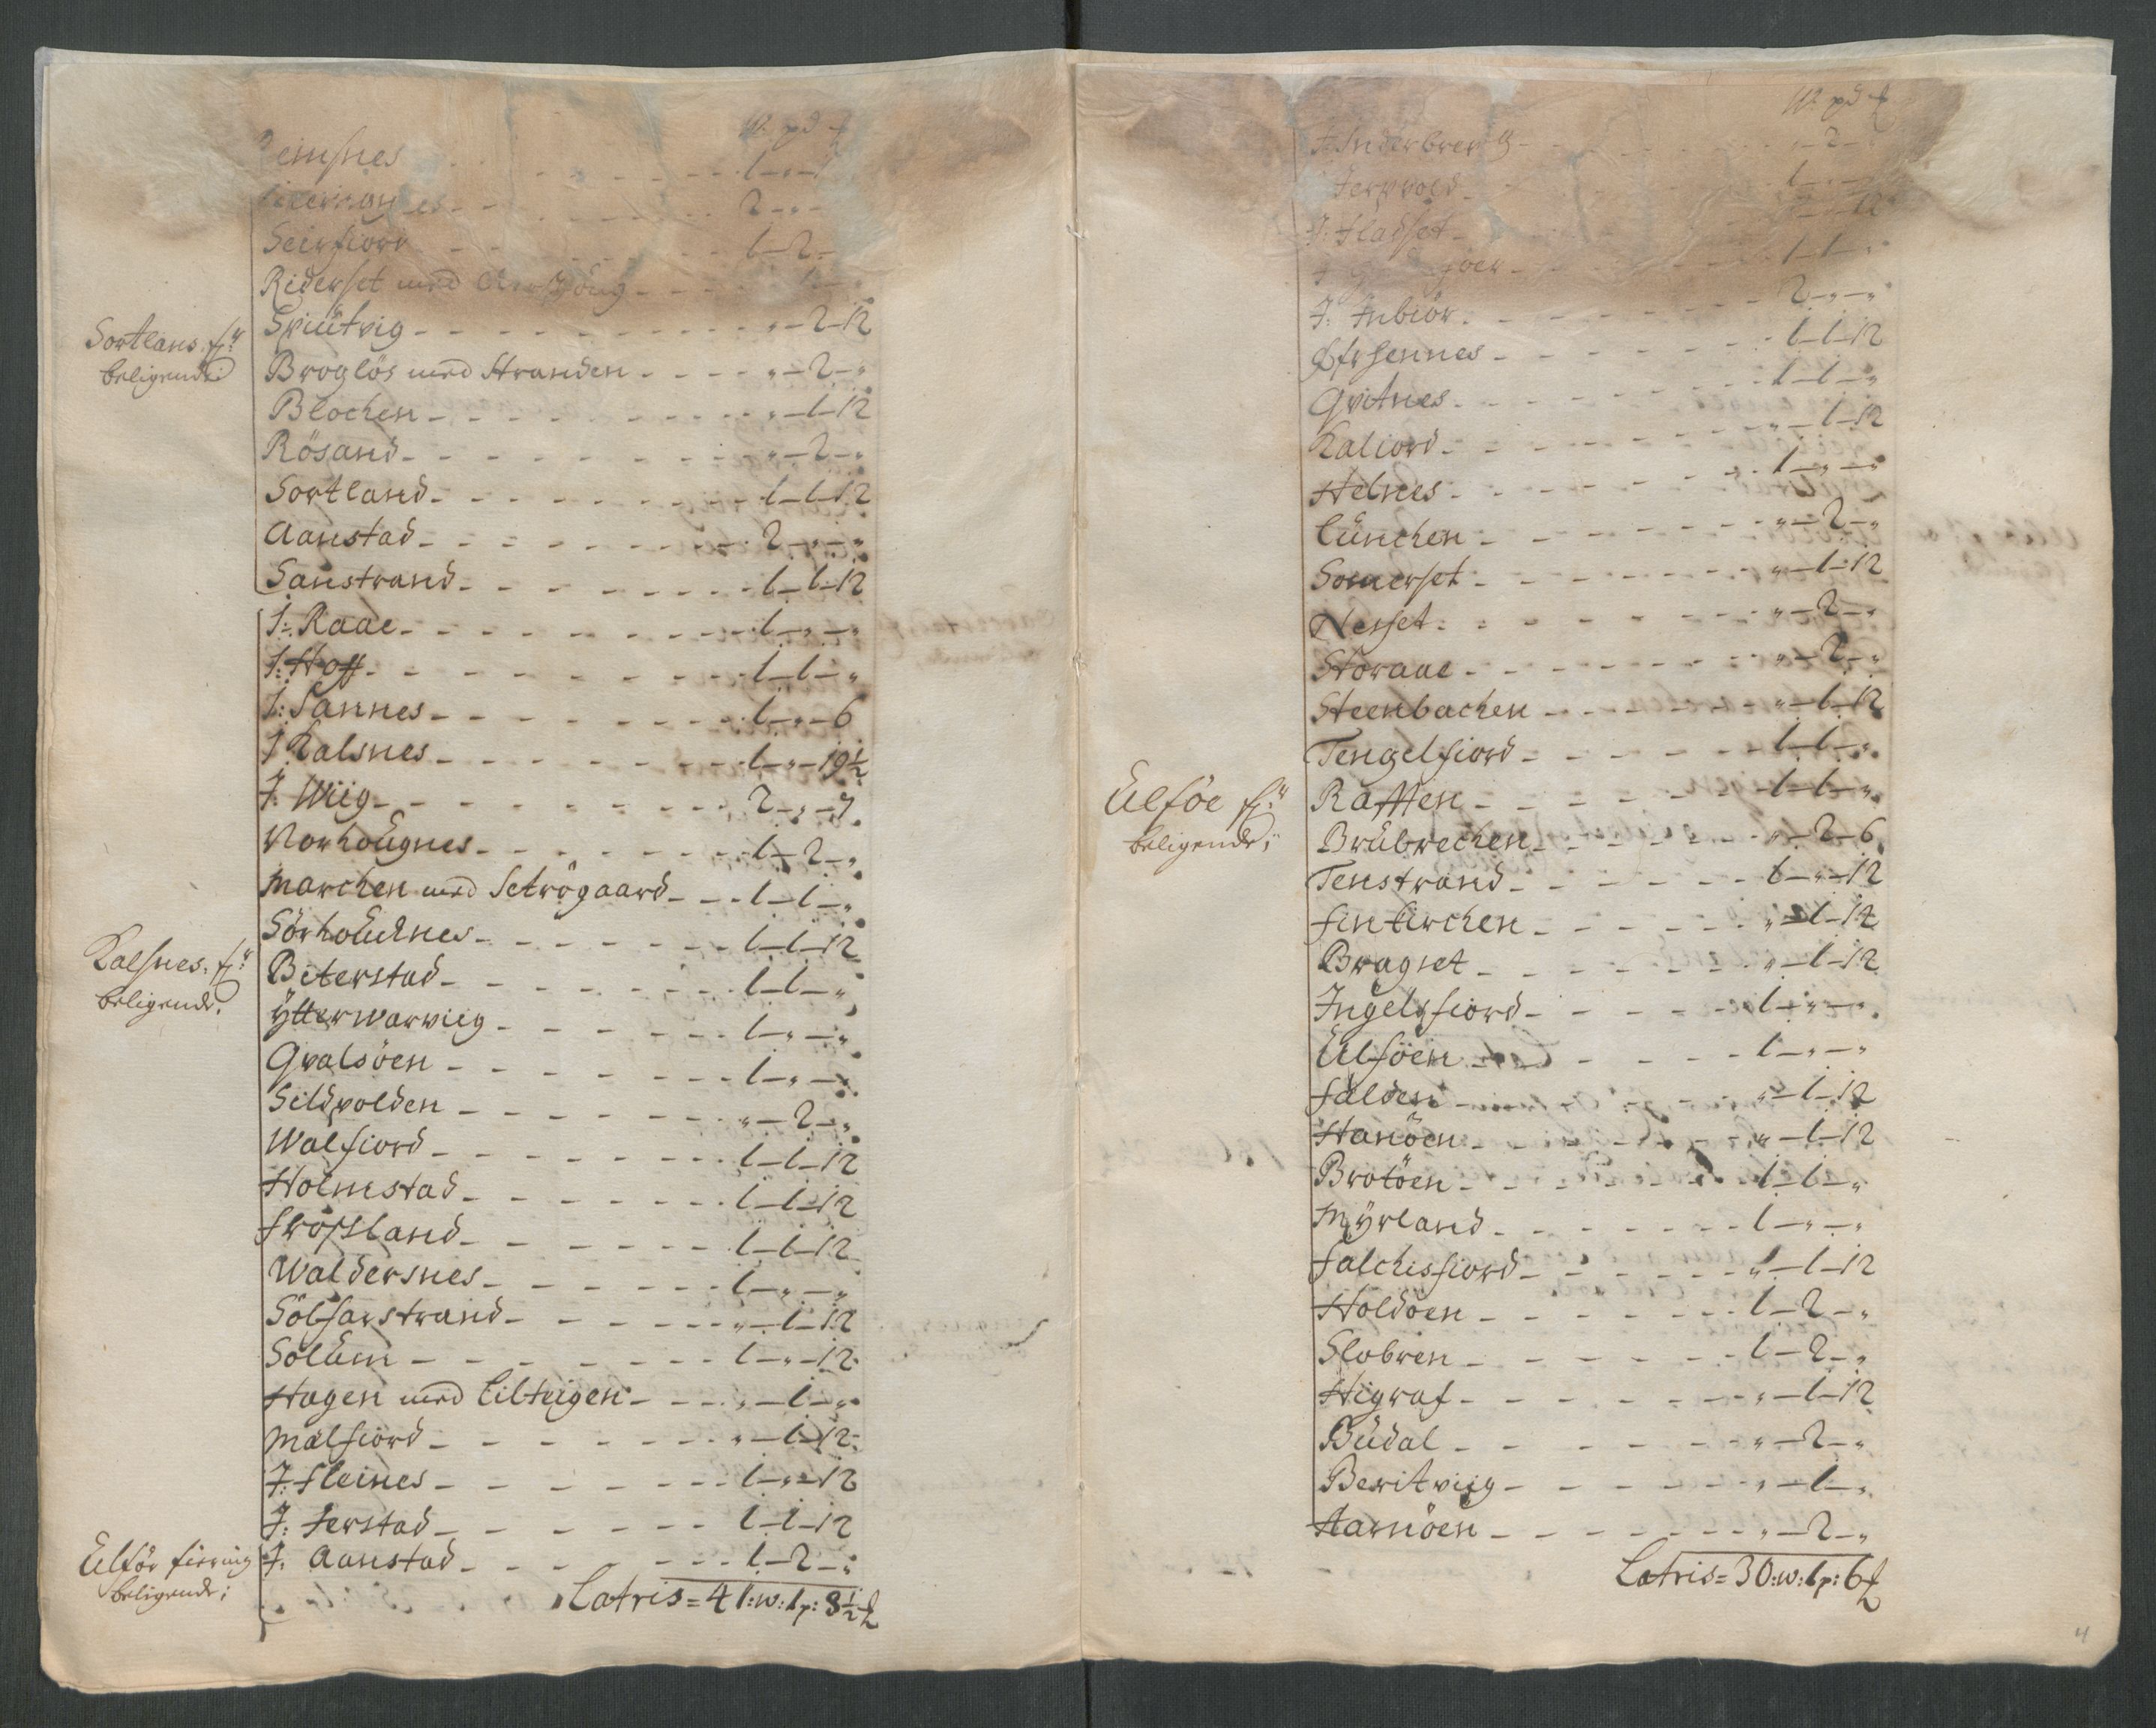 W: pd
Reinsnes - - - 1 - „ -
2 - „ -
Seirfiord - - - 1 - 2 -
Riderset med
Spiütvig - - - „ - 2 - 12
Sortlans fj:r
beligende
Broglös med Stranden - - - „ - 2 - „
Blochen - - - „ - 1 - 12
Rösand - - - „ - 2 - „
Sortland - - - 1 - 1 - 12
Aanstad - - - 2 - „ - „
Saustrand - - - 1 - 1 - 12
J: Raae - - - 1 - „ - „
J: Hoff - - - 1 - 1 - „
J: Sannes - - - 1 - „ - 6
J: Kalsnes - - - 1 - „ - 19½
J: Wiig - - - 2 - „ - 7
Norhougnes - - - 1 - 2 - „
Marchen med Setrögaard - - - 1 - 1 - „
Sörhoucknes - - - 1 - 1 - 12
Kalsnes fj:r
beligende
Biterstad - - - 1 - 1 - „
Ytterwarviig - - - 1 - „ - „
Gvalsöen - - - 1 - „ - „
Sildvolden - - - „ - 2 - „
Walfiord - - - 1 - 1 - 12
Holmstad - - - 1 - 1 - 12
Frøsland - - - 1 - 1 - 12
Waldersnes - - - 1 - „ - „
Sölfarstrand - - - „ - 1 - 12
Solum - - - 1 - „ - 12
Hagen med Lilteigen - - - „ - 1 - „
Malfiord - - - „ - 1 - 12
J: Fleines - - - 1 - „ - 12
J: Ferstad - - - 1 - 1 - 12
Ulför fierring
beligende:
J: Aanstad - - - 1 - 2 - „
Latris = 41: w: 1 p: 8½ ℔
W: pd ℔
J: Inderbrevig - - - „ - 2 -
Jervold - - - 1 - „ -
J: Fladset - - - 12
1 - 1 - „
J: Inbiör - - - 2 - „ - „
Efrhennes - - - 1 - 1 - 12
Qvitnes - - - 1 - 1 - „
Kaliord - - - „ - 1 - 12
Helnes - - - 1 - „ - „
Lünchen - - - „ - 2 - „
Somerset - - - „ - 1 - 12
Nesset - - - „ - 2 - „
Storaae - - - „ - 2 - „
Steenbachen - - - „ - 1 - 12
Tengelfiord - - - 1 - 1 - „
Ulföe fj:r
beligende:
Raften - - - 1 - 1 - „
Brübrechen - - - „ - 2 - 6
Tenstrand - - - 1 - „ - 12
Finkirchen - - - „ - 1 - 12
Bragset - - - „ - 1 - 12
Ingelsfiord - - - 1 - „ - „
Ulföen - - - 1 - „ - „
Falden - - - „ - 1 - 12
Hanöen - - - „ - 1 - 12
Brotöen - - - 1 - 1 - „
Myrland - - - 1 - „ - „
Falchisfiord - - - „ - 1 - 12
Holdöen - - - 1 - 2 - „
Slobren - - - 1 - 2 - „
Higraf - - - „ - 1 - 12
Büdal - - - „ - 2 - „
Beritviig - - - „ - 1 - „
Aarnöen - - - „ - 2 - „
Latris = 30: w: 1 p: 6 ℔
4